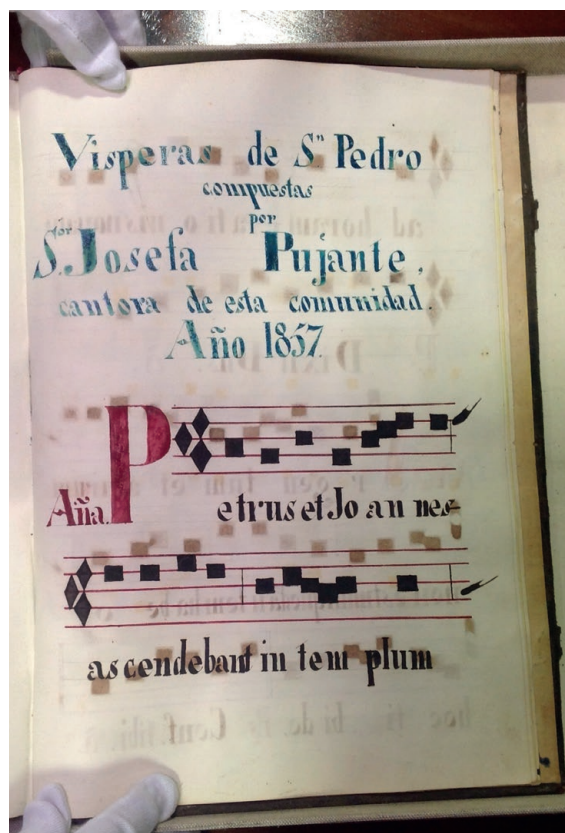 Visperas de Sⁿ Pedro
compuestas
por
S.ᵗᵒʳ Josefa Pujante,
cantora de esta comunidad.
Año 1857.
Aña. P
etrus et Jo an nes
as cendebant in tem plum